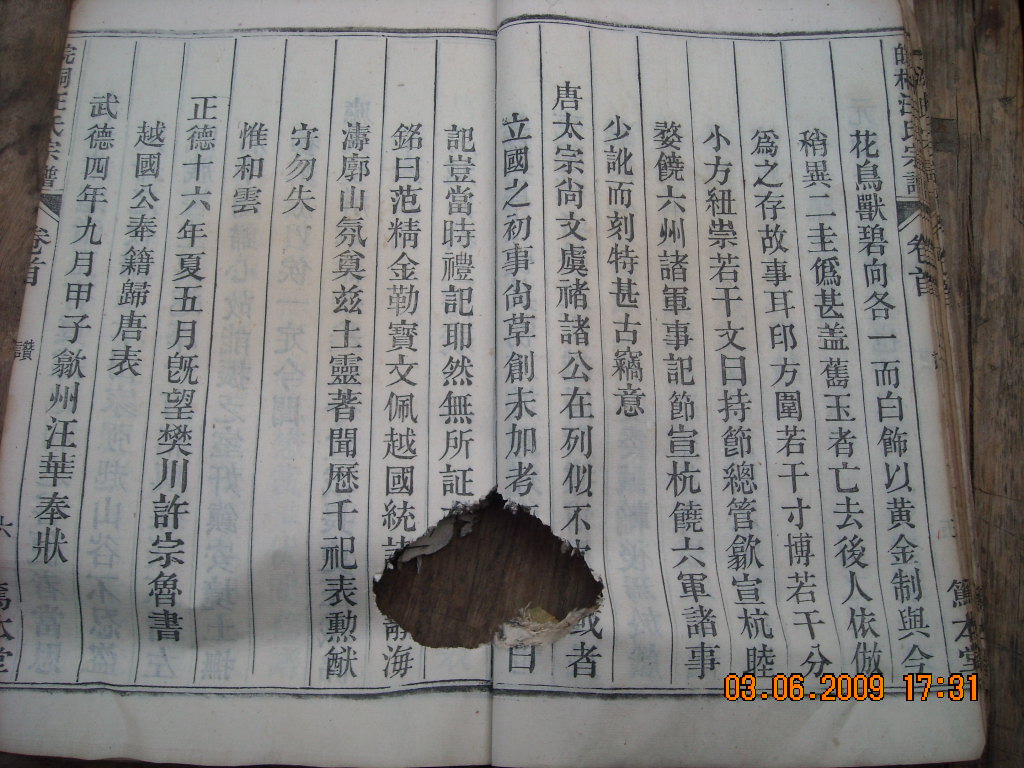 花鳥獸碧向各一而白飾以黃金制與今
稍異二圭僞甚盖舊玉者亡去後人依倣
爲之存故事耳印方圍若干寸博若干分
小方紐祟若干文曰持節總管歙宣杭睦
婺饒六州諸軍事記節宣杭饒六軍諸事
少訛而刻特甚古竊意
唐太宗尙文虞禇諸公在列似不 或者
立國之初事尙草創未加考 曰
記豈當時禮記耶然無所証
銘曰范精金勒寳文佩越國統 靜海
濤廓山氛奠兹土靈著聞歷千祀表勲猷
守勿失
惟和雲
正德十六年夏五月旣望樊川許宗魯書
越國公奉籍歸唐表
武德四年九月甲子歙州汪華奉狀
皖桐汪氏宗譜
卷首
讚
六
篤本堂
汪氏宗譜
卷首
篤本堂
03.06.2009 17:31